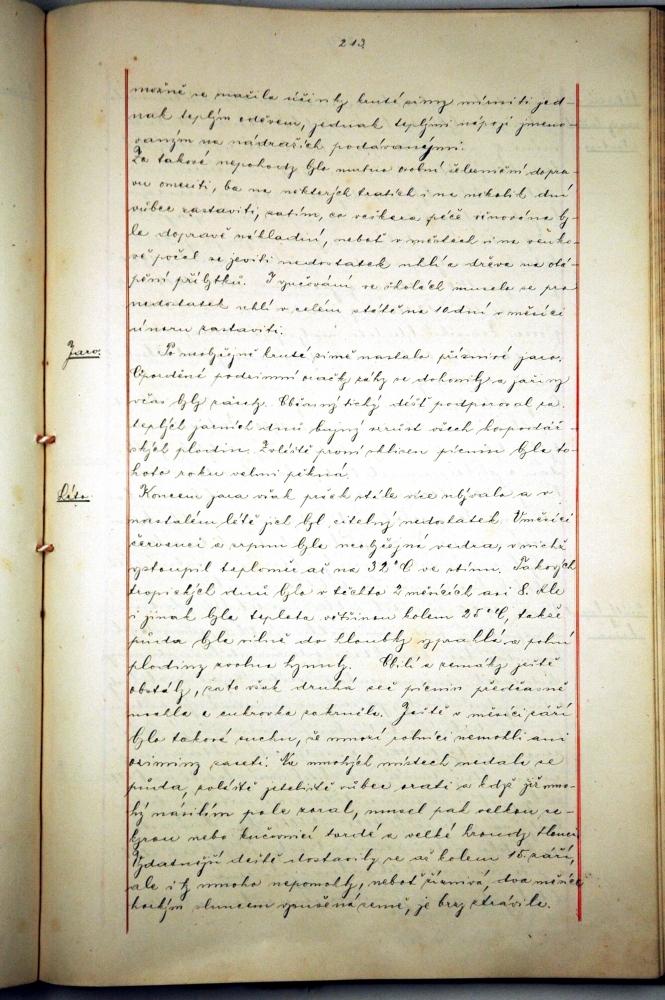 213
možně se snažila účinky kruté zimy mírniti jed-
nak teplým oděvem, jednak teplými nápoji jmeno-
vaným na nádražích podávanými.
Za takové nepohody bylo nutno osobní železniční dopra-
vu omeziti, ba na některých tratích i na několik dní
vůbec zastaviti, zatím, co veškera péče věnována by-
la dopravě nákladní, neboť v městech i na venko-
vě počal se jeviti nedostatek uhlí a dřeva na otá-
pění příbytků. Vyučování ve školách muselo se pro
nedostatek uhlí v celém státě na 10 dní v měsíci
únoru zastaviti.
Jaro.
Po neobyčejně kruté zimě nastalo příznivé jaro.
Opožděné podzimní oračky záhy se dohonily a jařiny
včas byly zasety. Občasný tichý déšť podporoval za
teplých jarních dnů bujný vzrůst všech hospodář-
ských plodin. Zvláště první sklizeň pícnin byla to-
hoto roku velmi pěkná.
Léto.
Koncem jara však pršek stále více ubývalo a v
nastalém létě jich byl citelný nedostatek. V měsíci
červenci a srpnu byla neobyčejná vedra, v nichž
vystoupil teploměr až na 32° C ve stínu. Takových
tropických dnů bylo v těchto 2 měsících asi 8. Ale
i jinak byla teplota většinou kolem 25° C, takže
půda byla silně do hloubky vyprahlá a polní
plodiny zvolna hynuly. Obilí a zemáky ještě
obstály, zato však druhá seč pícnin předčasně
uschla a cukrovka zakrněla. Ještě v měsíci září
bylo takové sucho, že mnozí rolníci nemohli ani
ozimniny zaseti. Na mnohých místech nedala se
půda, zvláště jeteliště vůbec orati a když již mno-
hý násilím pole zoral, musel pak velkou se-
kyrou nebo kučovnicí tvrdé a velké hroudy tlouci.
Vydatnější deště dostavily se až kolem 15. září,
ale i ty mnoho nepomohly, neboť žíznivá, dva měsíce
horkým sluncem vysušená země, je brzy strávila.